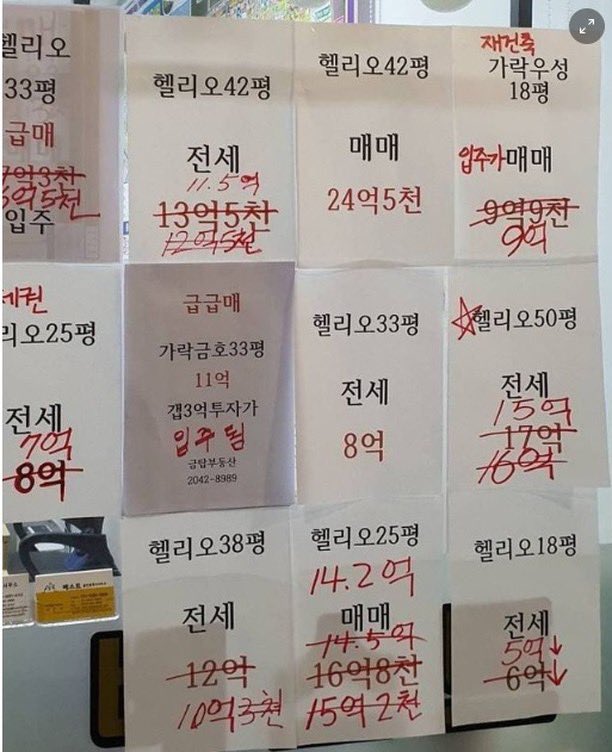 헬리오
33평
급매
7억3천
6억5천
입주
헬리오42평
전세
11.5억
13억5천
12억5천
헬리오42평
매매
24억5천
재건축
가락우성
18평
입주가 매매
9억9천
9억
세권
리오25평
전세
7억
8억
급급매
가락금호33평
11억
갭3억투자가
입주됨
금탑부동산
2042-8989
헬리오33평
전세
8억
헬리오50평
전세
15억
17억
16억
헬리오38평
전세
12억
10억3천
헬리오25평
14.2억
매매
14.5억
16억8천
15억2천
헬리오18평
전세
5억↓
6억↓